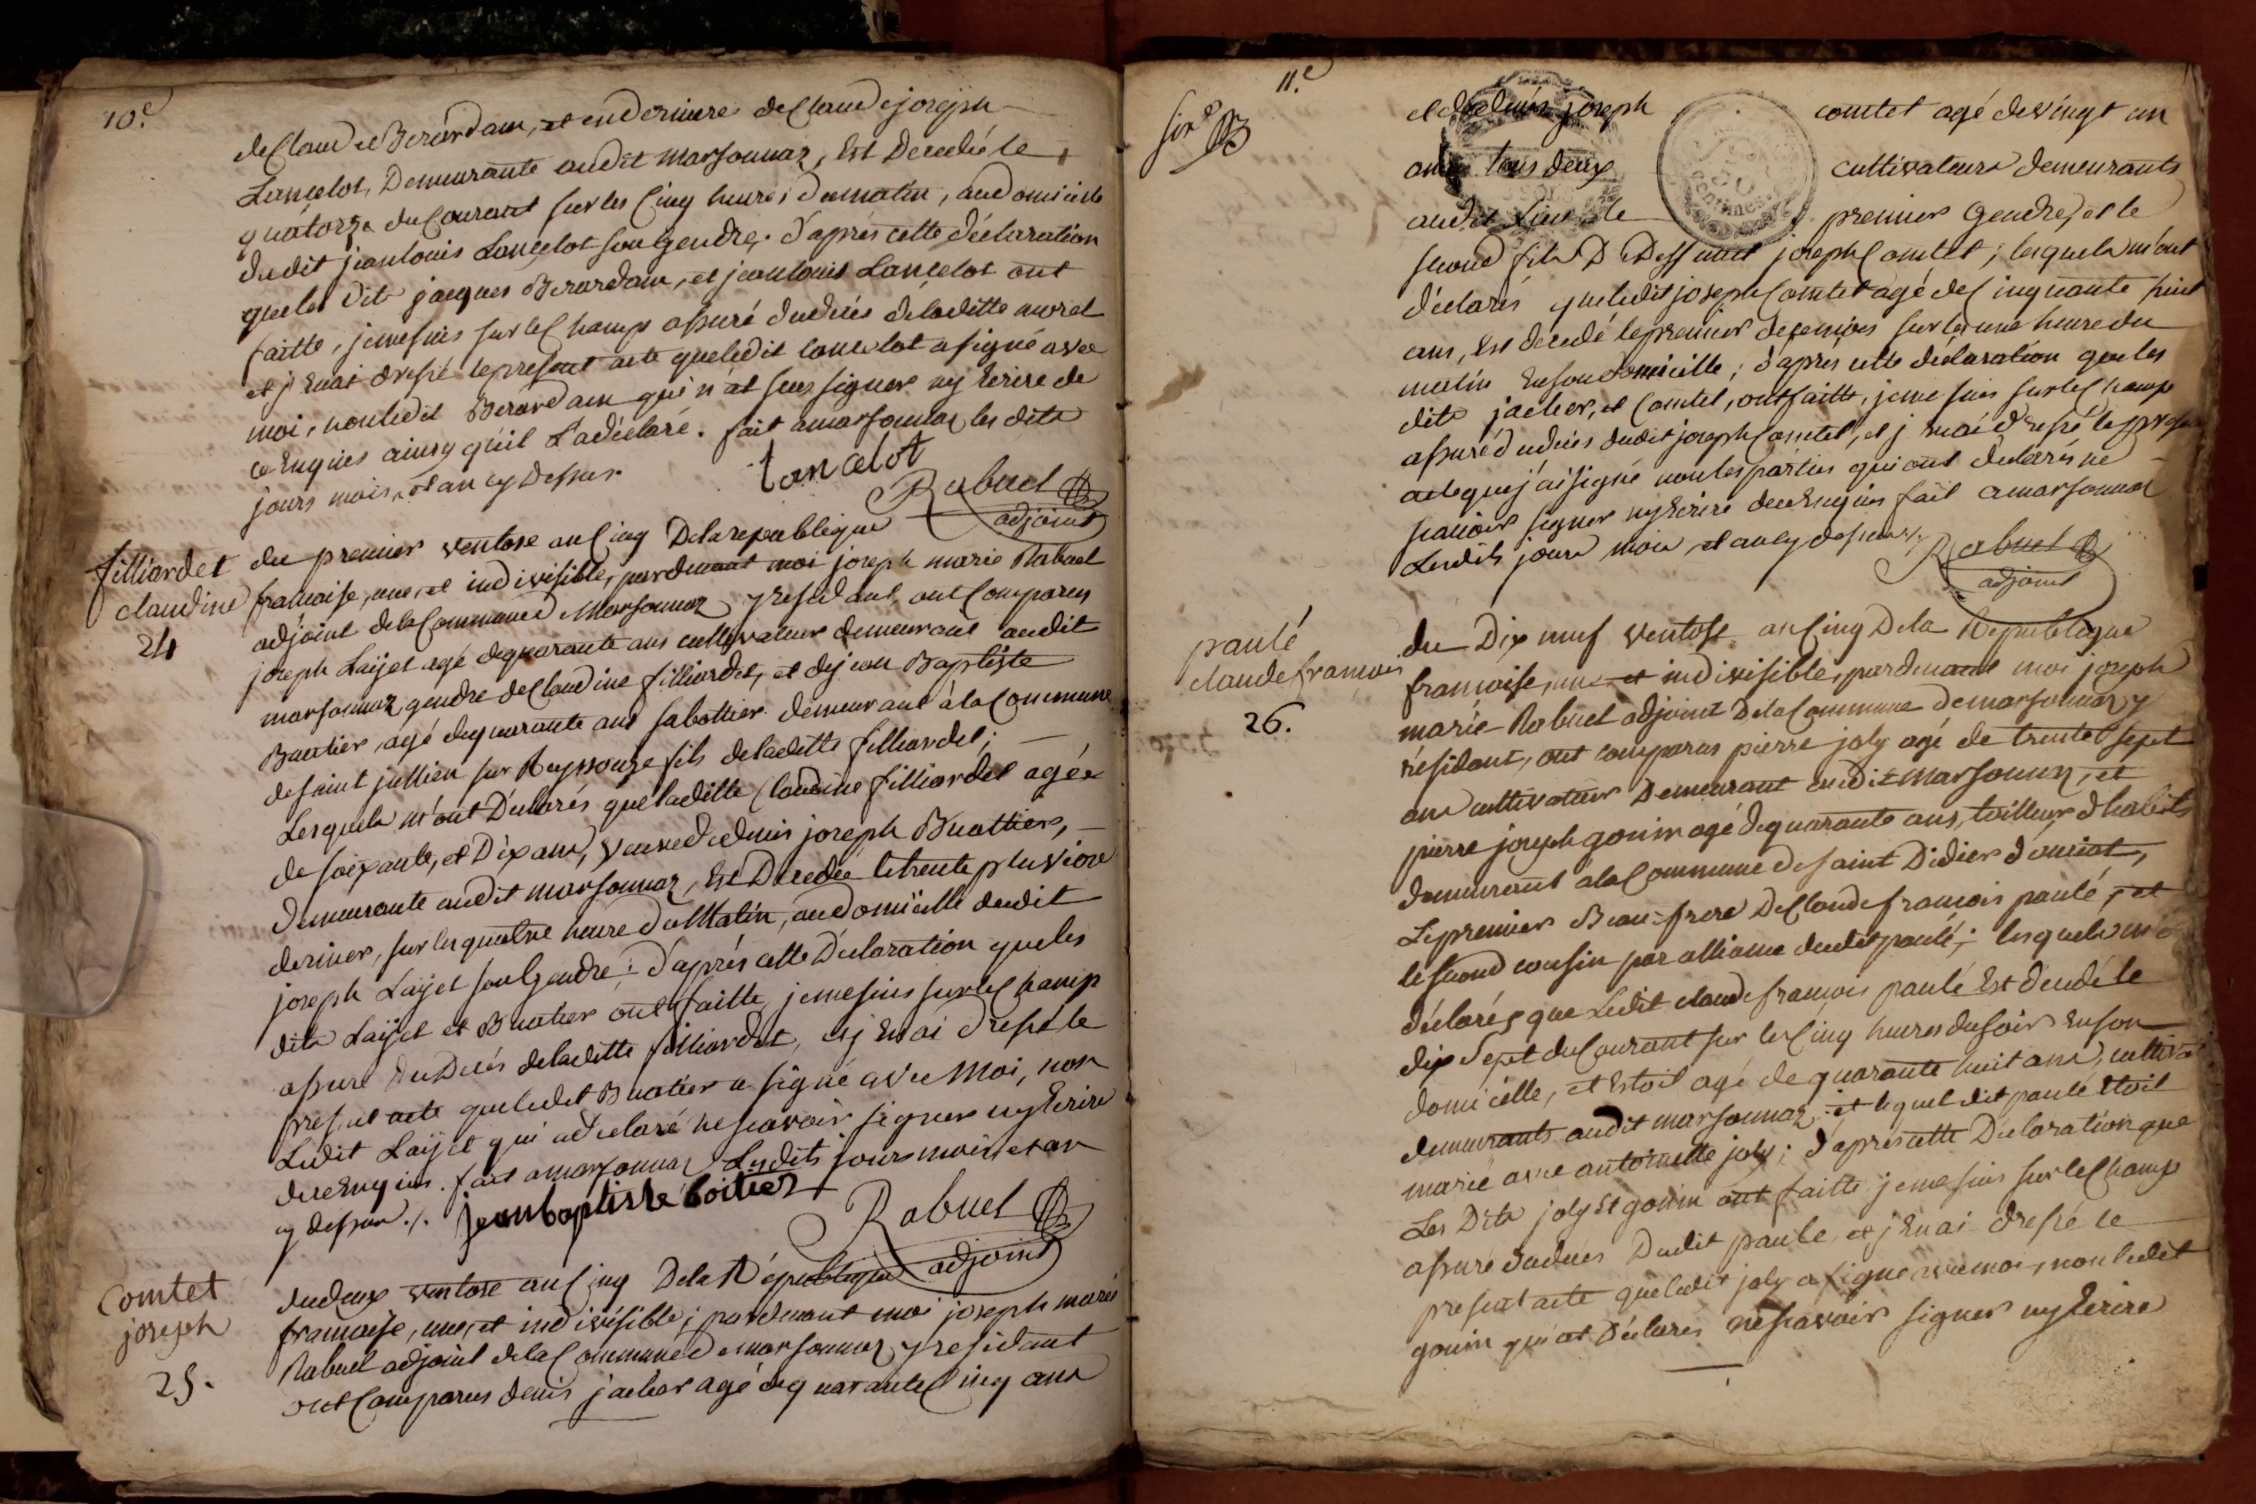 10.e
de Claude Berardam, et en derniere de Claude joseph
Lancelot, Demeurante audit marsonnaz, Est Decedée le
quatorze du Courant sur les Cinq heures du matin, au domicile
dudit jean louis Lancelot son Gendre. d'après cette déclaration
que les dits jacques Berardam, et jean louis Lancelot ont
faitte, je me suis sur le Champ assuré du decés de laditte morel
et j'Enai dressé le present acte que ledit lancelot a signé avec
moi, non ledit Berardam qui n'at sceu signer ny Ecrire de
ce Enquies ainsy qu'il L'a déclaré. fait a marsonnaz les dits
jours mois, et an cy Dessus.
lancelot
Rabuel
adjoint
filliardet
claudine
24
du premier ventose an Cinq Dela republique
francaise, une, et indivisible, pardevant moi joseph marie Rabuel
adjoint de la Commune de Marsonnaz y residant, ont Comparus
joseph Laÿet agé de quarante ans cultivateur demeurant audit
marsonnaz gendre de Claudine filliardet, et de jean Baptiste
Buatier agé de quarante ans sabottier demeurant à la Commune
de saint jullien sur Reyssouze fils de laditte filliardet;
Lesquels m'ont Déclarés que laditte Claudine filliardet agée
de soixante, et Dix ans, veuve de denis joseph Buattier,
demeurante audit marsonnaz, Est Decedée le trente pluviose
dernier, sur les quattre heure du Matin, au domicille dudit
joseph Laÿet son Gendre; d'après cette Déclaration que les
dits Laÿet et Buatier ont faitte, je me suis sur le Champ
assuré du Decés de laditte filliardet, et j'Enai dressé le
present acte que ledit Buatier a signé avec Moi, non
Ledit Laÿet qui a déclaré ne scavoir signer ny Ecrire
de ce Enquies. fait a marsonnaz Lesdits jours mois et an
cy dessus ./.
jean baptiste boitier
Rabuel
adjoint
Comtet
joseph
25.
du deux ventose an Cinq Dela République
francaise, une, et indivisible; pardevant moi joseph marie
Rabuel adjoint de la Commune de marsonnaz y residant
ont Comparus denis jacher agé de quarante Cinq ans
11.e
et de denis joseph comtet agé de vingt un
ans tous deux cultivateurs demeurants
audit Lieu le premier Gendre, et le
second fils joseph Comtet; lesquels m'ont
déclarés que ledit joseph Comtet agé de Cinquante huit
ans, Est decedé le premier de ce mois sur les une heure du
matin En son domicille; d'après cette déclaration que les
dits jacher, et Comtet, ont faitte, je me suis sur le Champ
assuré du deces dudit joseph Comtet, et j'Enai dressé le present
acte que j'ai signé non les parties qui ont declarés ne
scavoir signer ny Ecrire de ce Enquies fait a marsonnaz
Lesdits jours mois, et an cy dessus ./.
Rabuel
adjoint
paulé
claude francois
26.
du Dix neuf ventose an Cinq Dela République
francoise, une et indivisible, pardevant moi joseph
marie Rabuel adjoint Dela Commune de marsonnaz y
résidant, ont comparus pierre joly agé de trente sept
ans cultivateur Demeurant audit marsonnaz, et
pierre joseph gonin agé de quarante ans, tailleur d'habits
demeurant à la Commune de saint Didier d'oussiat,
Le premier Beau-frere De Claude francois paulé, et
le second cousin par alliance dudit paulé; lesquels m'ont
déclarés que Ledit claude francois paulé Est décédé le
dix Sept du Courant sur les Cinq heures du soir En son
domicille, et Estoit agé de quarante huit ans, cultiva
demeurants audit marsonnaz; et lequel dit paulé Etoit
marié avec antoinette joly; d'après cette Déclaration que
Les Dits joly et gonin ont faitte je me suis sur le Champ
assuré du deces Dudit paulé, et j'Enai dressé le
present acte que ledit joly a signé avec moi, non ledit
gonin qui at Déclarés ne scavoir signer ny Ecrire